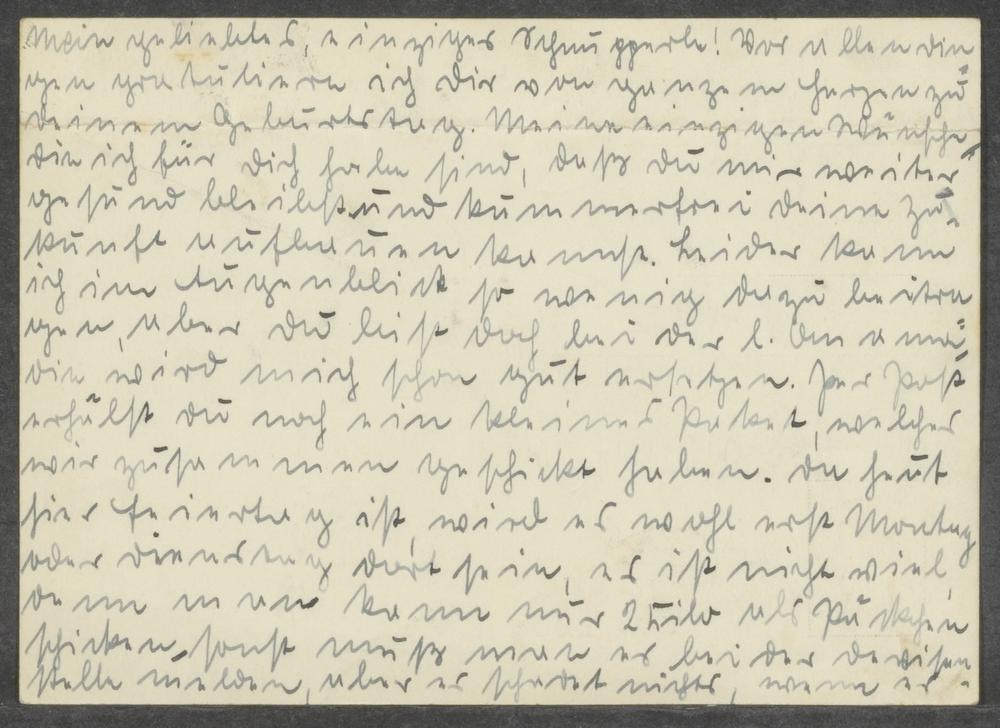 Mein geliebtes, einziges Schnupperle! Vor allen Din-
gen gratuliere ich Dir von ganzem Herzen zu
Deinem Geburtstag. Meine einzigen Wünsche,
die ich für Dich habe sind, daß du mir weiter
gesund bleibst und kummerfrei deine Zu-
kunft aufbauen kannst. Leider kann
ich im Augenblick so wenig dazu beitra
gen, aber du bist doch bei der l.
die wird mich schon gut ersetzen. Per Post
erhälst du noch ein kleines Paket, welches
wir zusammen geschickt haben. Da heut
hier Feiertag ist, wird es wohl erst Montag
oder Dienstag dort sein, es ist nicht viel,
denn man kann nur 2 Kilo als Päckchen
schicken, sonst muß man es bei der Devisen
stelle melden, aber es schadet nichts, wenn er-